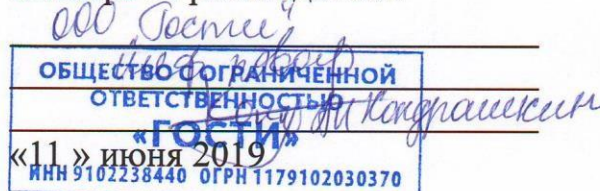 ООО "Гости"
Шеф повар
ОБЩЕСТВО С ОГРАНИЧЕННОЙ
ОТВЕТСТВЕННОСТЬЮ
Кондрашкин
«ГОСТИ»
«11 » июня 2019
ИНН 9102238440 ОГРН 1179102030370